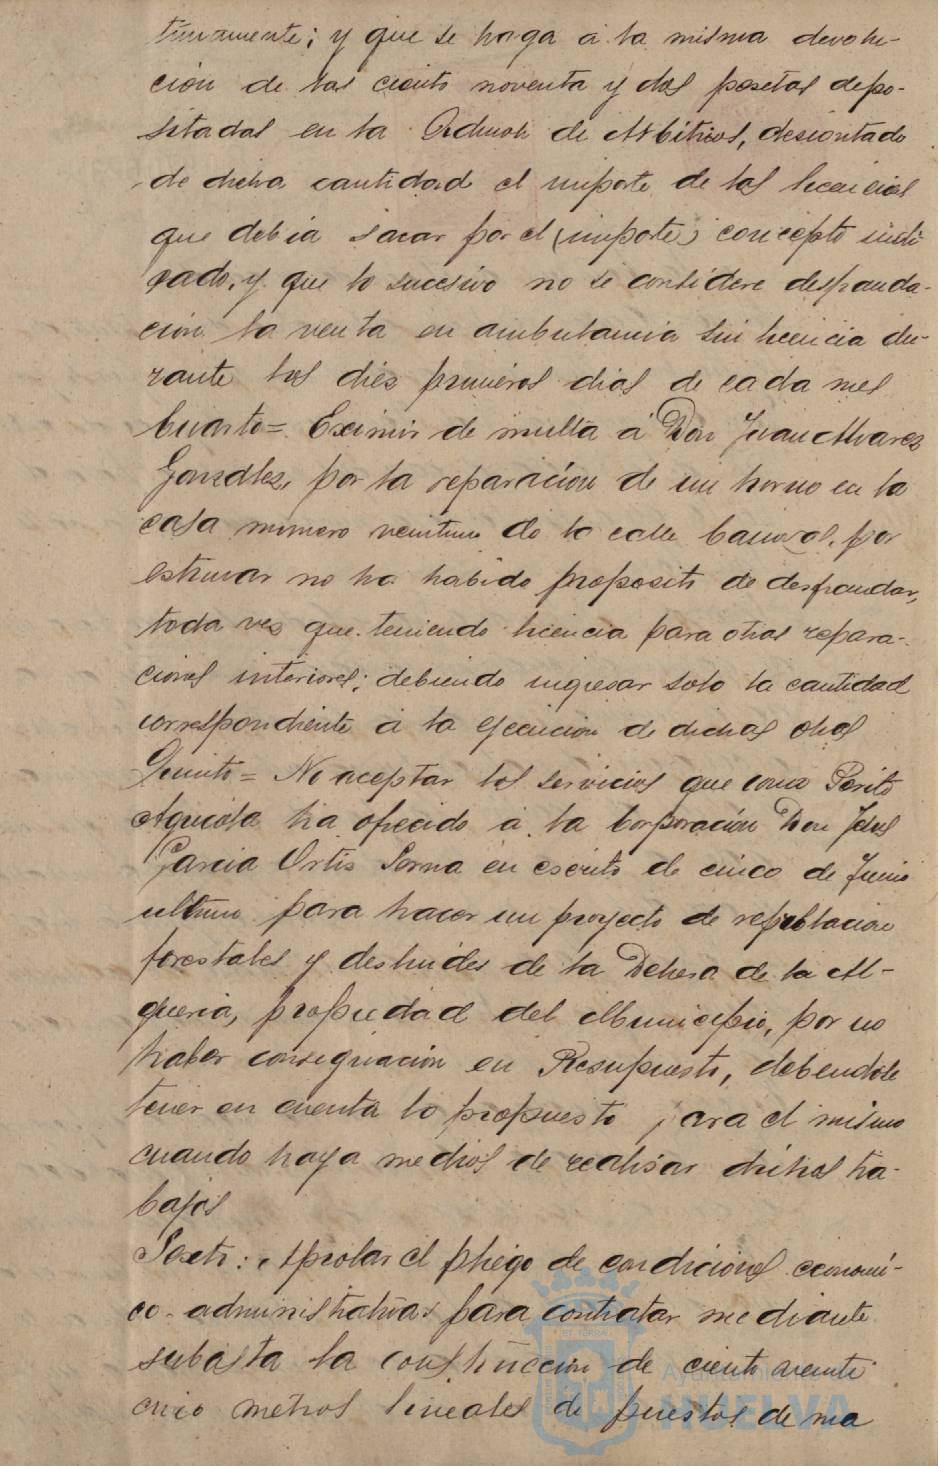 tinuamente; y que se haga a la misma devolu-
ción de las ciento noventa y dos pesetas depo-
sitadas en la Admon de Arbitrios, descontado
de dicha cantidad el importe de las licencias
que debia sacar por el (importe) concepto indi
cado, y que lo sucesivo no se considere desfrauda-
cion la venta en ambulancia sin licencia du-
rante los diez primeros dias de cada mes
Cuarto = Eximir de multa á Don Juan Alvarez
Gonzalez, por la reparación de un horno en la
casa número veintiuno de la calle , por
estimar no ha habido proposito de desfraudar,
toda vez que teniendo licencia para otras repara-
ciones interiores; debiendo ingresar solo la cantidad
correspondiente a la ejecucion de dichas obras
Quinto = No aceptar los servicios que como Perito
Agricola ha ofrecido á la Corporación Don Jesus
Garcia Ortis Serna en escrito de cinco de Junio
ultimo para hacer un proyecto de repoblacion
forestales y deslindes de la Dehesa de la Al-
queria, propiedad del Municipio, por no
haber consignación en Presupuesto, debiendole
tener en cuenta lo propuesto para el mismo
cuando haya medios de realisar dichos tra-
bajos
Sexto: Aprobar el pliego de condiciones económi-
co-administrativas para contratar mediante
subasta la construccion de ciento veinte
cinco metros lineales de puestos de ma
Ayuntamiento
HUELVA